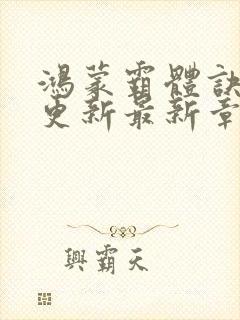 鴻蒙霸體訣
更新最新章
興霸天